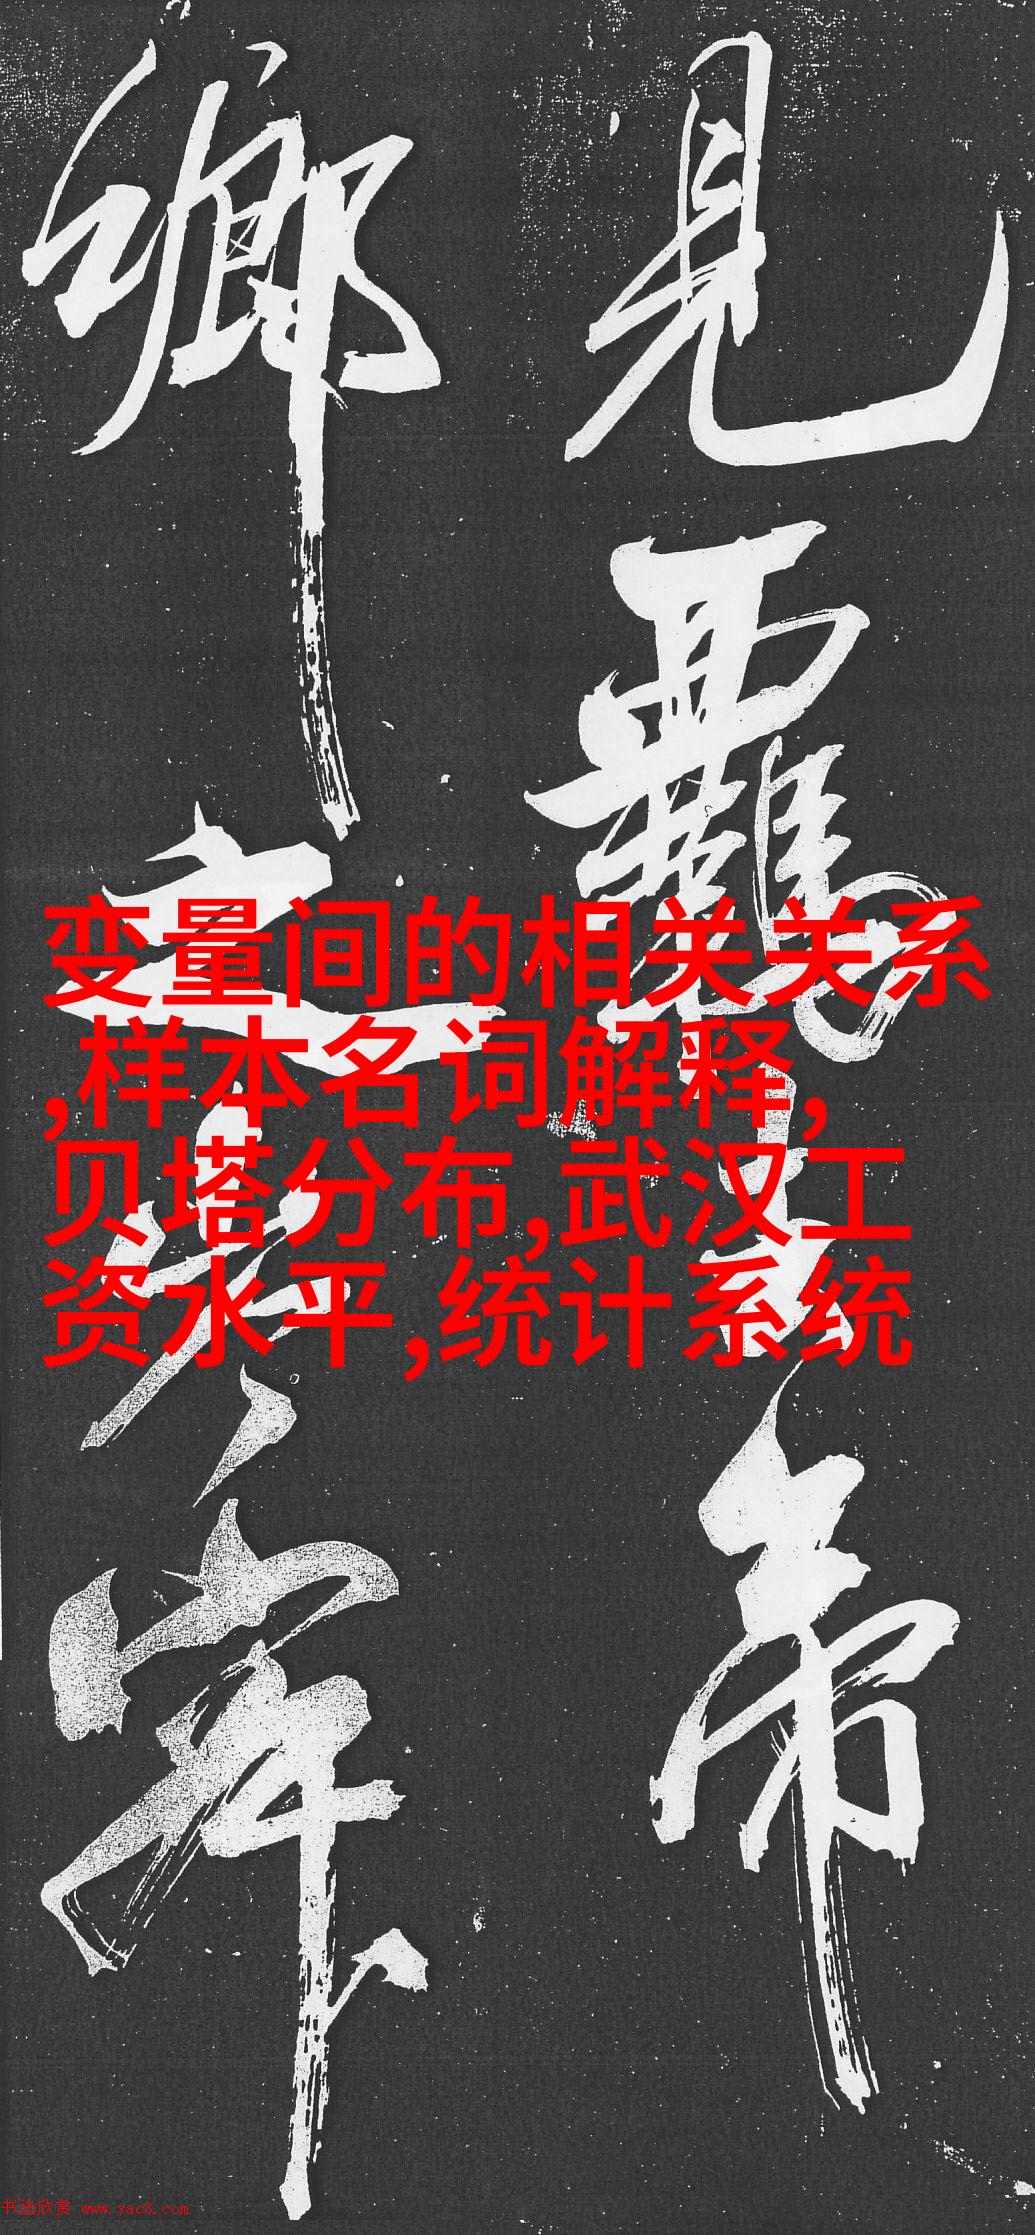 見羈士帝
鄉之
变量间的相关关系
,样本名词解释,
贝塔分布,武汉工
资水平,统计系统
书法欣赏 www.yac8.com